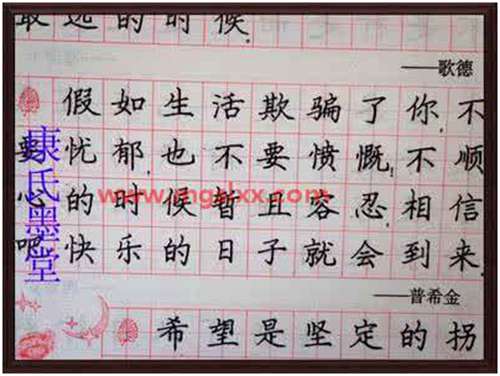 最远的时候.
——歌德
假如生活欺骗了你,不
要忧郁,也不要愤慨,不顺
心的时候暂且容忍,相信
吧,快乐的日子就会到来.
——普希金
希望是坚定的拐
康氏墨堂